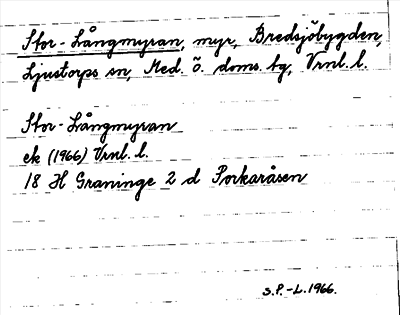 Stor-Långmyran, myr, Bredsjöbygden,
Ljustorps sn, Med. ö. doms. tg, Vrnl. l.
Stor-Långmyran
ek (1966) Vrnl. l.
18 H Graninge 2 d Porkaråsen
S.P.-L. 1966.